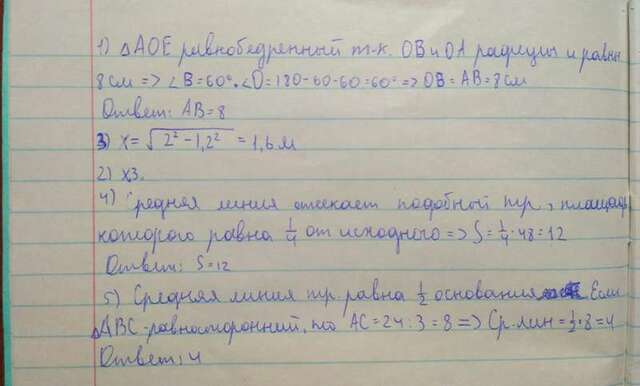 1) △AOE равнобедренный т-к. OB и OA радиусы и равны
8 см => ∠B=60°. ∠O=180-60-60=60° => OB=AB=8см
Ответ: AB=8
3) x=√2²-1,2² = 1,6 м
2) х.з.
4) Средняя линия отсекает подобный тр., площадь
которого равна 1/4 от исходного => S=1/4·48=12
Ответ: S=12
5) Средняя линия тр. равна 1/2 основания Если
△ABC-равносторонний, то AC=24:3=8 => Ср.лин=1/2·8=4
Ответ: 4